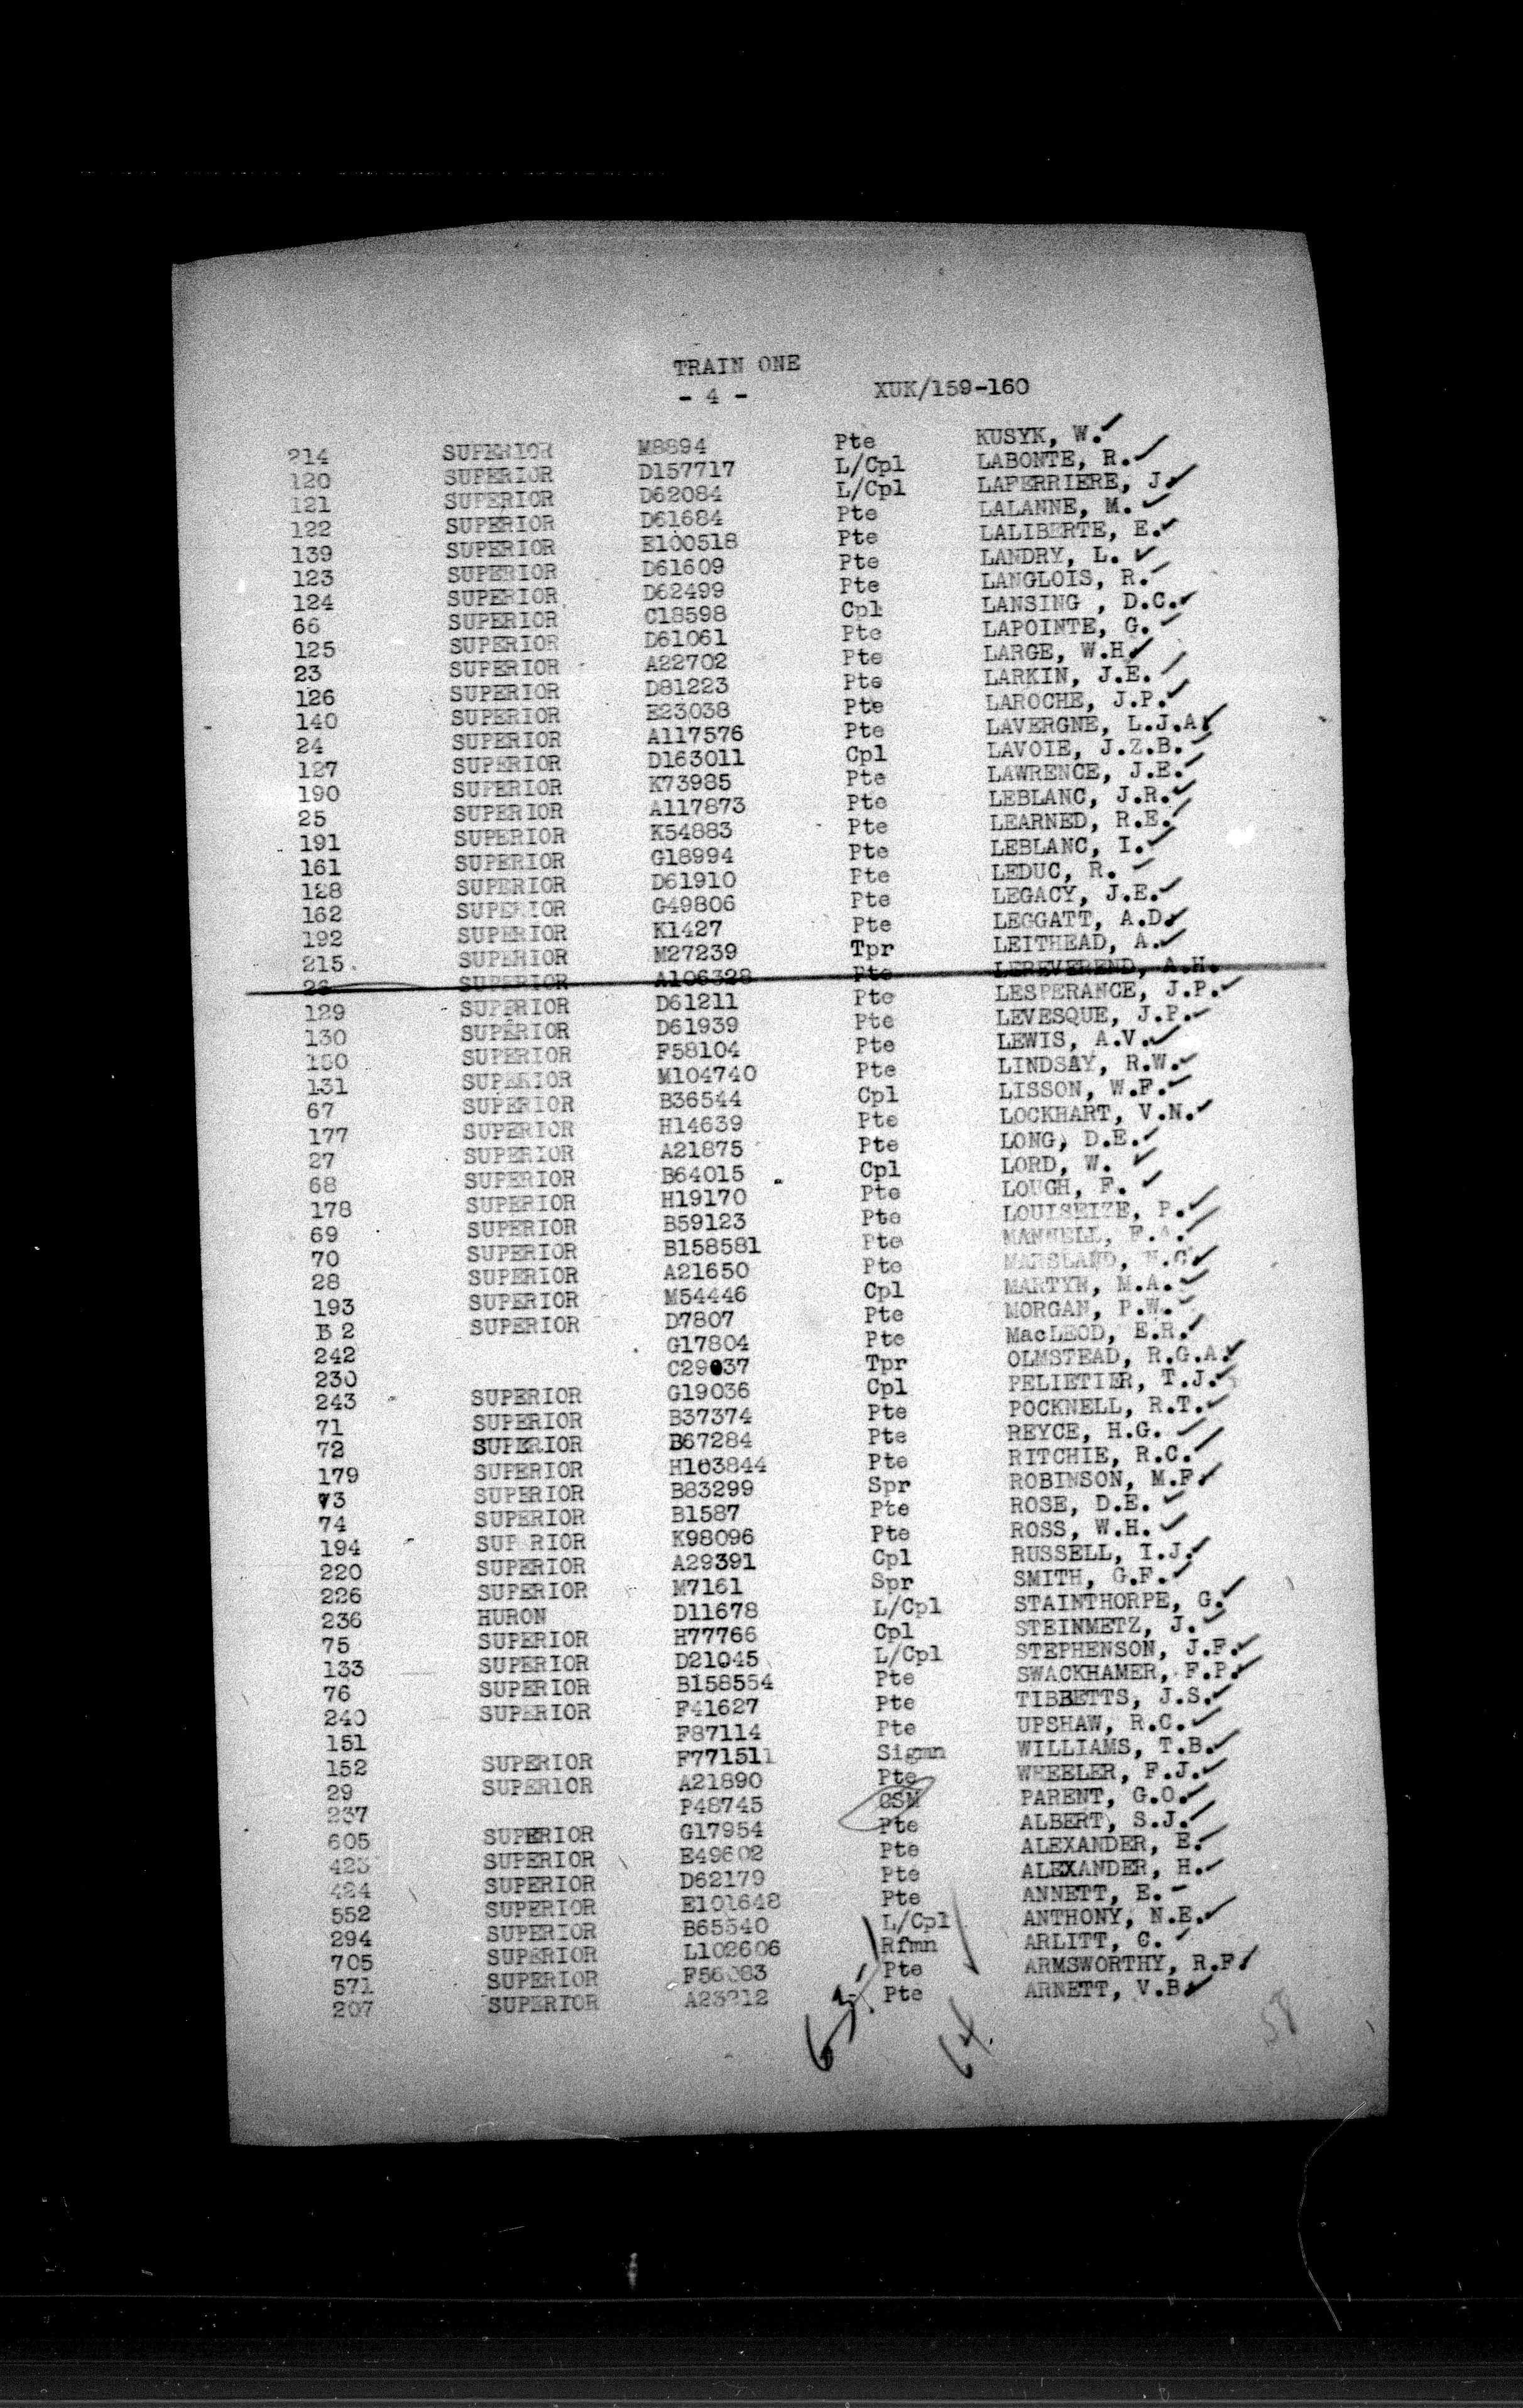 TRAIN ONE
- 4 - XUK/159-160
214 SUPERIOR M8894 Pte KUSYK, W.
120 SUPERIOR D157717 L/Cpl LABONTE, R.
121 SUPERIOR D62084 L/Cpl LAFERRIERE, J.
122 SUPERIOR D61684 Pte LALANNE, M.
139 SUPERIOR E100518 Pte LALIBERTE, E.
123 SUPERIOR D61609 Pte LANDRY, L.
124 SUPERIOR D62499 Pte LANGLOIS, R.
66 SUPERIOR C18598 Cpl LANSING , D.C.
125 SUPERIOR D61061 Pte LAPOINTE, G.
23 SUPERIOR A22702 Pte LARGE, W.H.
126 SUPERIOR D81223 Pte LARKIN, J.E.
140 SUPERIOR E23038 Pte LAROCHE, J.P.
24 SUPERIOR A117576 Pte LAVERGNE, L.J.A.
127 SUPERIOR D163011 Cpl LAVOIE, J.Z.B.
190 SUPERIOR K73985 Pte LAWRENCE, J.E.
25 SUPERIOR A117873 Pte LEBLANC, J.R.
191 SUPERIOR K54883 Pte LEARNED, R.E.
161 SUPERIOR G18994 Pte LEBLANC, I.
128 SUPERIOR D61910 Pte LEDUC, R.
162 SUPERIOR G49806 Pte LEGACY, J.E.
192 SUPERIOR K1427 Pte LEGGATT, A.D.
215 SUPERIOR M27239 Tpr LEITHEAD, A.
26 SUPERIOR A106328 Pte LEREVEREND, A.H.
129 SUPERIOR D61211 Pte LESPERANCE, J.P.
130 SUPERIOR D61939 Pte LEVESQUE, J.P.
SUPERIOR F58104 Pte LEWIS, A.V.
131 SUPERIOR M104740 Pte LINDSAY, R.W.
67 SUPERIOR B36544 Cpl LISSON, W.F.
177 SUPERIOR H14639 Pte LOCKHART, V.N.
27 SUPERIOR A21875 Pte LONG, D.E.
68 SUPERIOR B64015 Cpl LORD, W.
178 SUPERIOR H19170 Pte LOUGH, F.
69 SUPERIOR B59123 Pte LOUISEIZE, P.
70 SUPERIOR B158581 Pte MANNELL, F.A.
28 SUPERIOR A21650 Pte MARSLAND, N.C.
193 SUPERIOR M54446 Cpl MARTYN, M.A.
B 2 SUPERIOR D7807 Pte MORGAN, P.W.
242 G17804 Pte MacLEOD, E.R.
230 C29037 Tpr OLMSTEAD, R.G.A.
243 SUPERIOR G19036 Cpl PELIETIER, T.J.
71 SUPERIOR B37374 Pte POCKNELL, R.T.
72 SUPERIOR B67284 Pte REYCE, H.G.
179 SUPERIOR H103844 Pte RITCHIE, R.C.
73 SUPERIOR B83299 Spr ROBINSON, M.F.
74 SUPERIOR B1587 Pte ROSE, D.E.
194 SUP RIOR K98096 Pte ROSS, W.H.
220 SUPERIOR A29391 Cpl RUSSELL, I.J.
226 SUPERIOR M7161 Spr SMITH, G.F.
236 HURON D11678 L/Cpl STAINTHORPE, G.
75 SUPERIOR H77766 Cpl STEINMETZ, J.
133 SUPERIOR D21045 L/Cpl STEPHENSON, J.F.
76 SUPERIOR B158554 Pte SWACKHAMER, F.P.
240 SUPERIOR F41627 Pte TIBBETTS, J.S.
151 F87114 Pte UPSHAW, R.C.
152 SUPERIOR F771511 Sigmn WILLIAMS, T.B.
29 SUPERIOR A21890 Pte WHEELER, F.J.
237 P48745 CSM PARENT, G.O.
605 SUPERIOR G17954 Pte ALBERT, S.J.
423 SUPERIOR E49602 Pte ALEXANDER, E.
424 SUPERIOR D62179 Pte ALEXANDER, H.
552 SUPERIOR E101648 Pte ANNETT, E.
294 SUPERIOR B65540 L/Cpl ANTHONY, N.E.
705 SUPERIOR L102606 Rfmn ARLITT, C.
571 SUPERIOR F56083 Pte ARMSWORTHY, R.F.
207 SUPERIOR A23212 Pte ARNETT, V.B.
64. 58